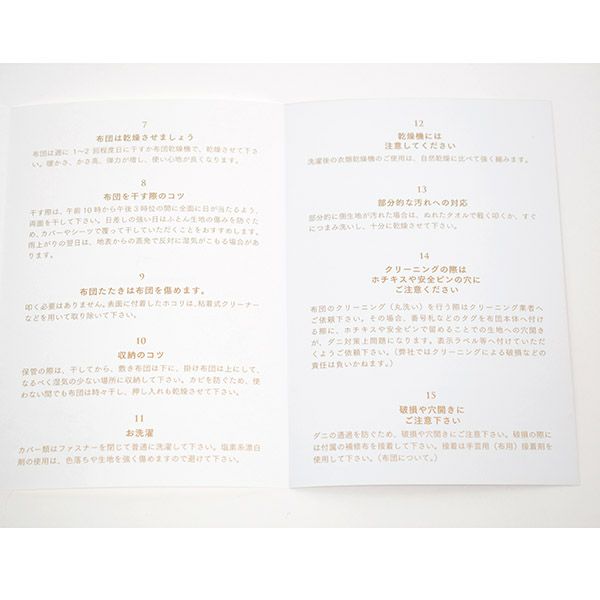 7
布団は乾燥させましょう
布団は週に 1〜2 回程度日に干すか布団乾燥機で、乾燥させて下さ
い。暖かさ、かさ高、弾力が増し、使い心地が良くなります。
8
布団を干す際のコツ
干す際は、午前 10 時から午後 3 時位の間に全面に日が当たるよう、
両面を干して下さい。日差しの強い日はふとん生地の傷みを防ぐた
め、カバーやシーツで覆って干していただくことをおすすめします。
雨上がりの翌日は、地表からの蒸発で反対に湿気がこもる場合があ
ります。
9
布団たたきは布団を傷めます。
叩く必要はありません。表面に付着したホコリは、粘着式クリーナー
などを用いて取り除いて下さい。
10
収納のコツ
保管の際は、干してから、敷き布団は下に、掛け布団は上にして、
なるべく湿気の少ない場所に収納して下さい。カビを防ぐため、使
わない間でも布団は時々干し、押し入れも乾燥させて下さい。
11
お洗濯
カバー類はファスナーを閉じて普通に洗濯して下さい。塩素系漂白
剤の使用は、色落ちや生地を強く傷めますので避けて下さい。
12
乾燥機には
注意してください
洗濯後の衣類乾燥機のご使用は、自然乾燥に比べて強く縮みます。
13
部分的な汚れへの対応
部分的に側生地が汚れた場合は、ぬれたタオルで軽く叩くか、すぐ
につまみ洗いし、十分に乾燥させて下さい。
14
クリーニングの際は
ホチキスや安全ピンの穴に
ご注意ください
布団のクリーニング（丸洗い）を行う際はクリーニング業者へ
ご依頼下さい。その場合、番号札などのタグを布団本体へ付け
る際に、ホチキスや安全ピンで留めることでの生地への穴開き
が、ダニ対策上問題になります。表示ラベル等へ付けていただ
くようご依頼下さい。（弊社ではクリーニングによる破損などの
責任は負いかねます。）
15
破損や穴開きに
ご注意下さい
ダニの通過を防ぐため、破損や穴開きにご注意下さい。破損の際に
は付属の補修布を接着して下さい。接着は手芸用（布用）接着剤を
使用して下さい。（布団について。）